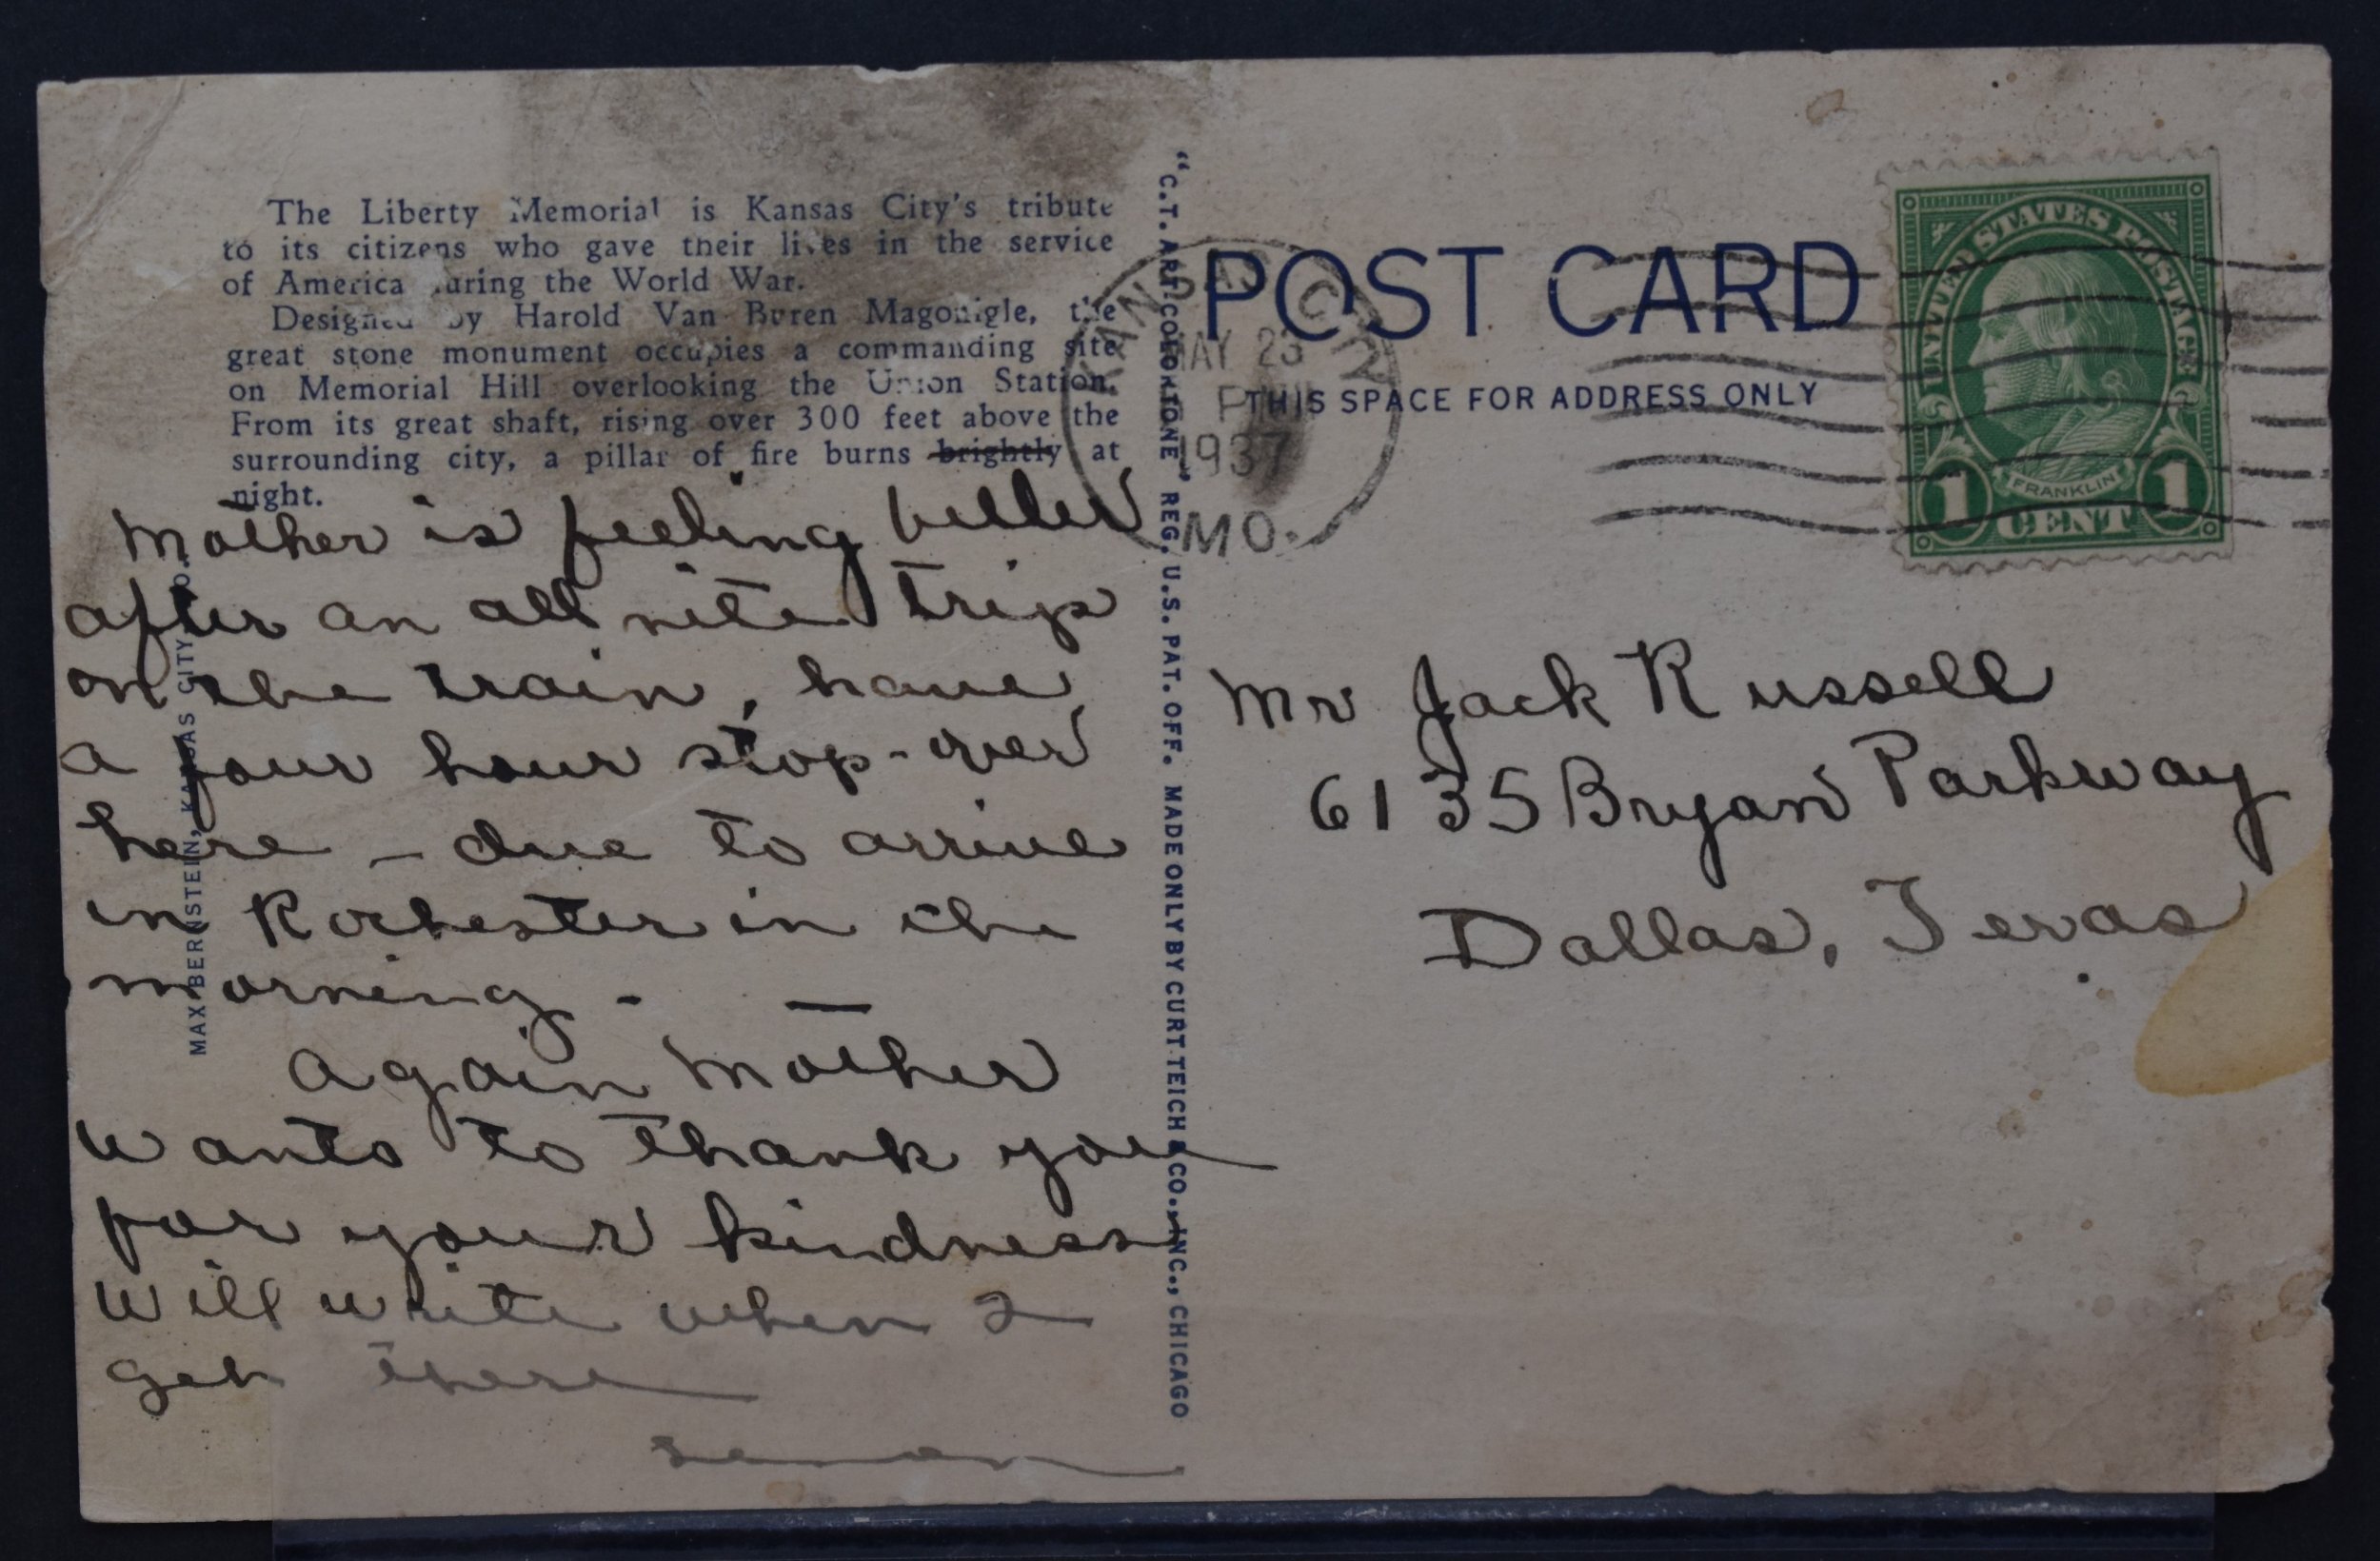 The Liberty Memorial is Kansas City's tribute
to its citizens who gave their lives in the service
of America during the World War.
Designed by Harold Van Buren Magonigle, the
great stone monument occupies a commanding site
on Memorial Hill overlooking the Union Station.
From its great shaft, rising over 300 feet above the
surrounding city, a pillar of fire burns brightly at
night.
Mother is feeling better
after an all nite trip
on the train, have
a four hour stop-over
here - due to arrive
in Rochester in the
morning -
again Mother
wants to thank you
for your kindness
will write when I
get there
MAX BERNSTEIN, KANSAS CITY, MO.
"C.T. ART-COLORTONE" REG. U.S. PAT. OFF. MADE ONLY BY CURT TEICH & CO., INC., CHICAGO
POST CARD
THIS SPACE FOR ADDRESS ONLY
KANSAS CITY
MAY 23
PM
1937
MO.
UNITED STATES POSTAGE
FRANKLIN
1 CENT 1
Mr Jack Russell
6135 Bryan Parkway
Dallas, Texas